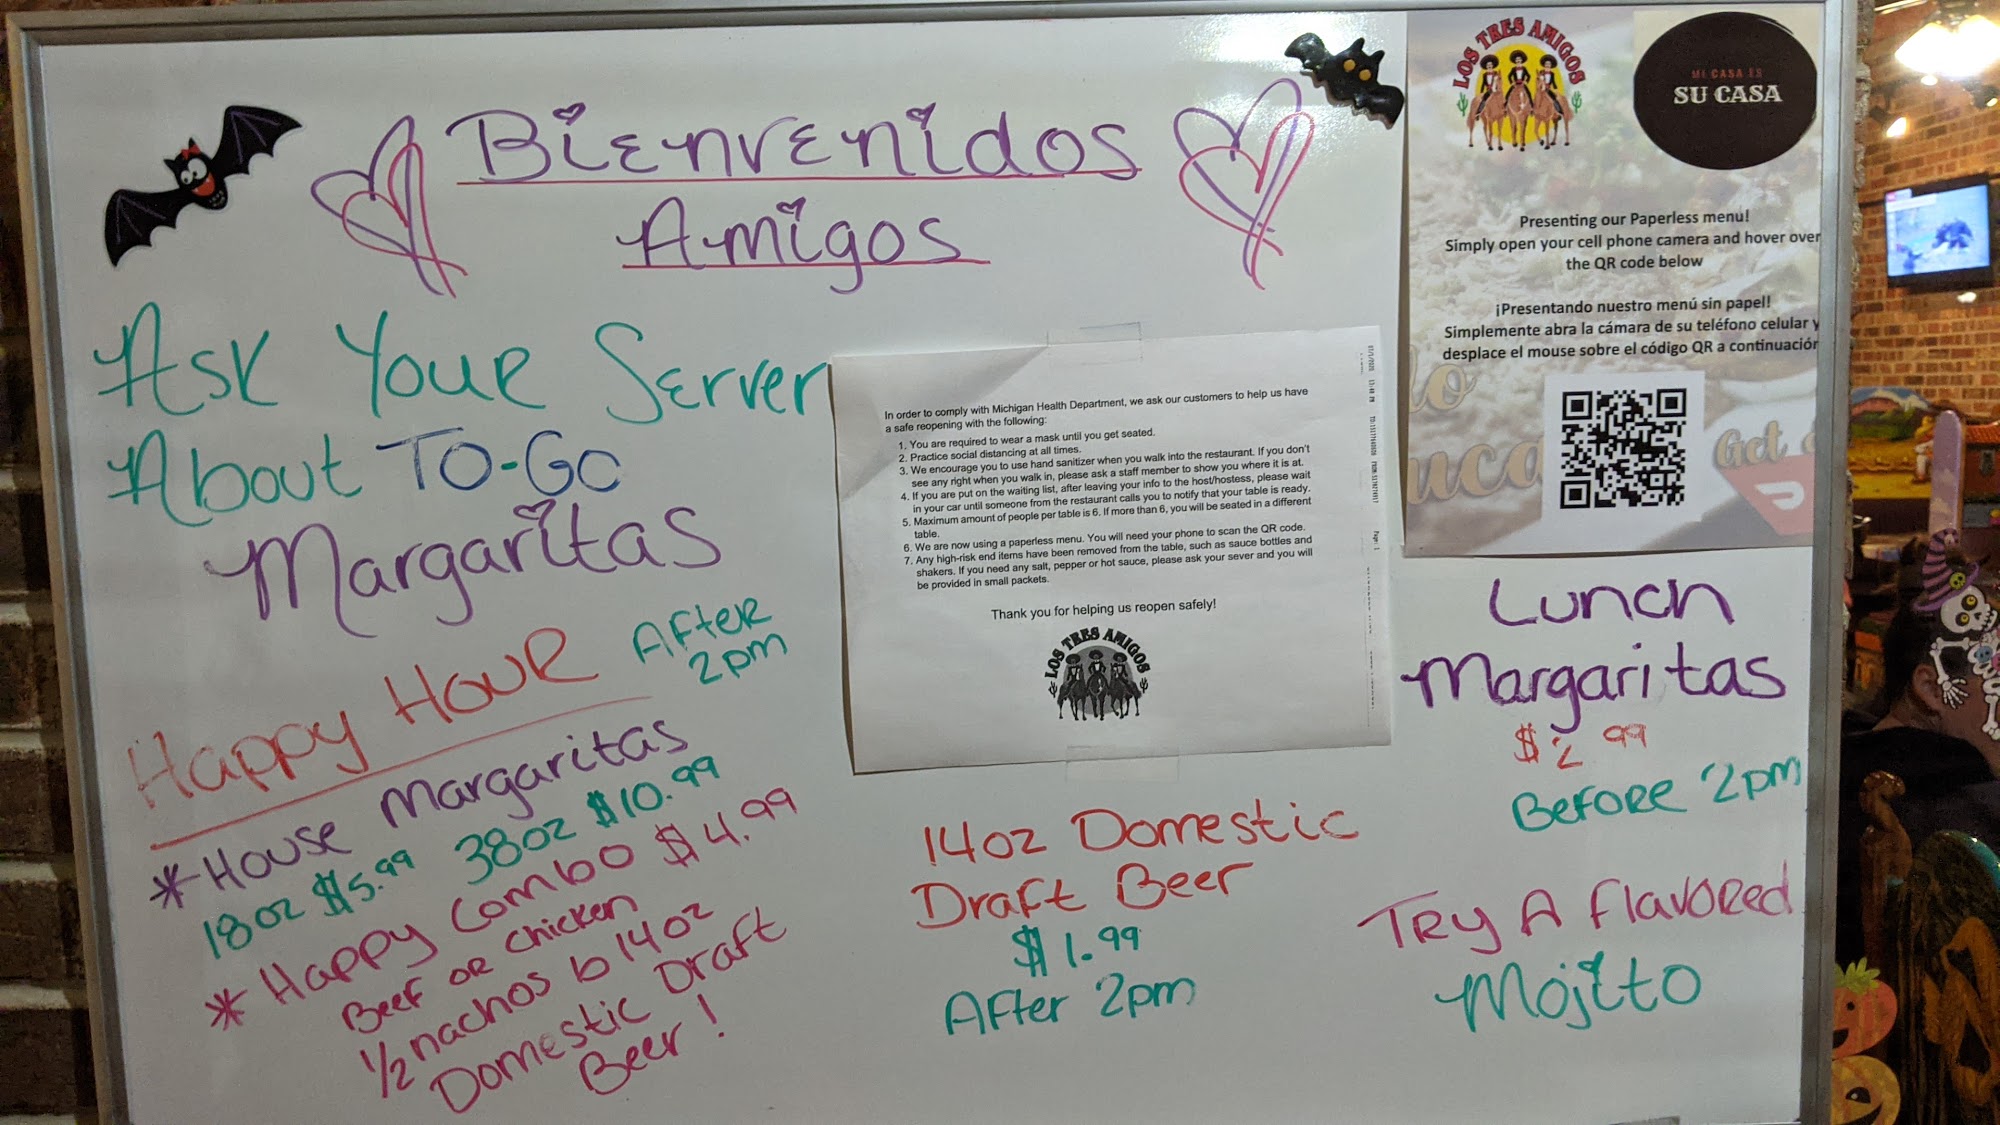 Bienvenidos
Amigos
Ask Your Server
About TO-GO
Margaritas
Happy Hour
After
2pm
*House Margaritas
18oz $5.99 38oz $10.99
* Happy Combo $4.99
Beef or Chicken
1/2 nachos b 14oz
Domestic Draft
Beer!
In order to comply with Michigan Health Department, we ask our customers to help us have
a safe reopening with the following:
1. You are required to wear a mask until you get seated.
2. Practice social distancing at all times.
3. We encourage you to use hand sanitizer when you walk into the restaurant. If you don't
see any right when you walk in, please ask a staff member to show you where it is at.
4. If you are put on the waiting list, after leaving your info to the host/hostess, please wait
in your car until someone from the restaurant calls you to notify that your table is ready.
5. Maximum amount of people per table is 6. If more than 6, you will be seated in a different
table.
6. We are now using a paperless menu. You will need your phone to scan the QR code.
7. Any high-risk end items have been removed from the table, such as sauce bottles and
shakers. If you need any salt, pepper or hot sauce, please ask your sever and you will
be provided in small packets.
Thank you for helping us reopen safely!
LOS TRES AMIGOS
14oz Domestic
Draft Beer
$1.99
After 2pm
LOS TRES AMIGOS
MI CASA ES
SU CASA
Presenting our Paperless menu!
Simply open your cell phone camera and hover over
the QR code below
¡Presentando nuestro menú sin papel!
Simplemente abra la cámara de su teléfono celular y
desplace el mouse sobre el código QR a continuación
Get
Lunch
Margaritas
$2.99
Before 2pm
Try A Flavored
Mojito